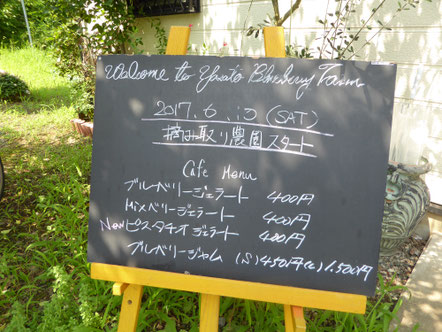 Welcome to Yasato Blueberry Farm
2017.6.10 (SAT)
摘み取り農園スタート
Cafe Menu
ブルーベリージェラート 400円
Mixベリージェラート 400円
New ピスタチオジェラート 400円
ブルーベリージャム (S)450円 (L)1,500円